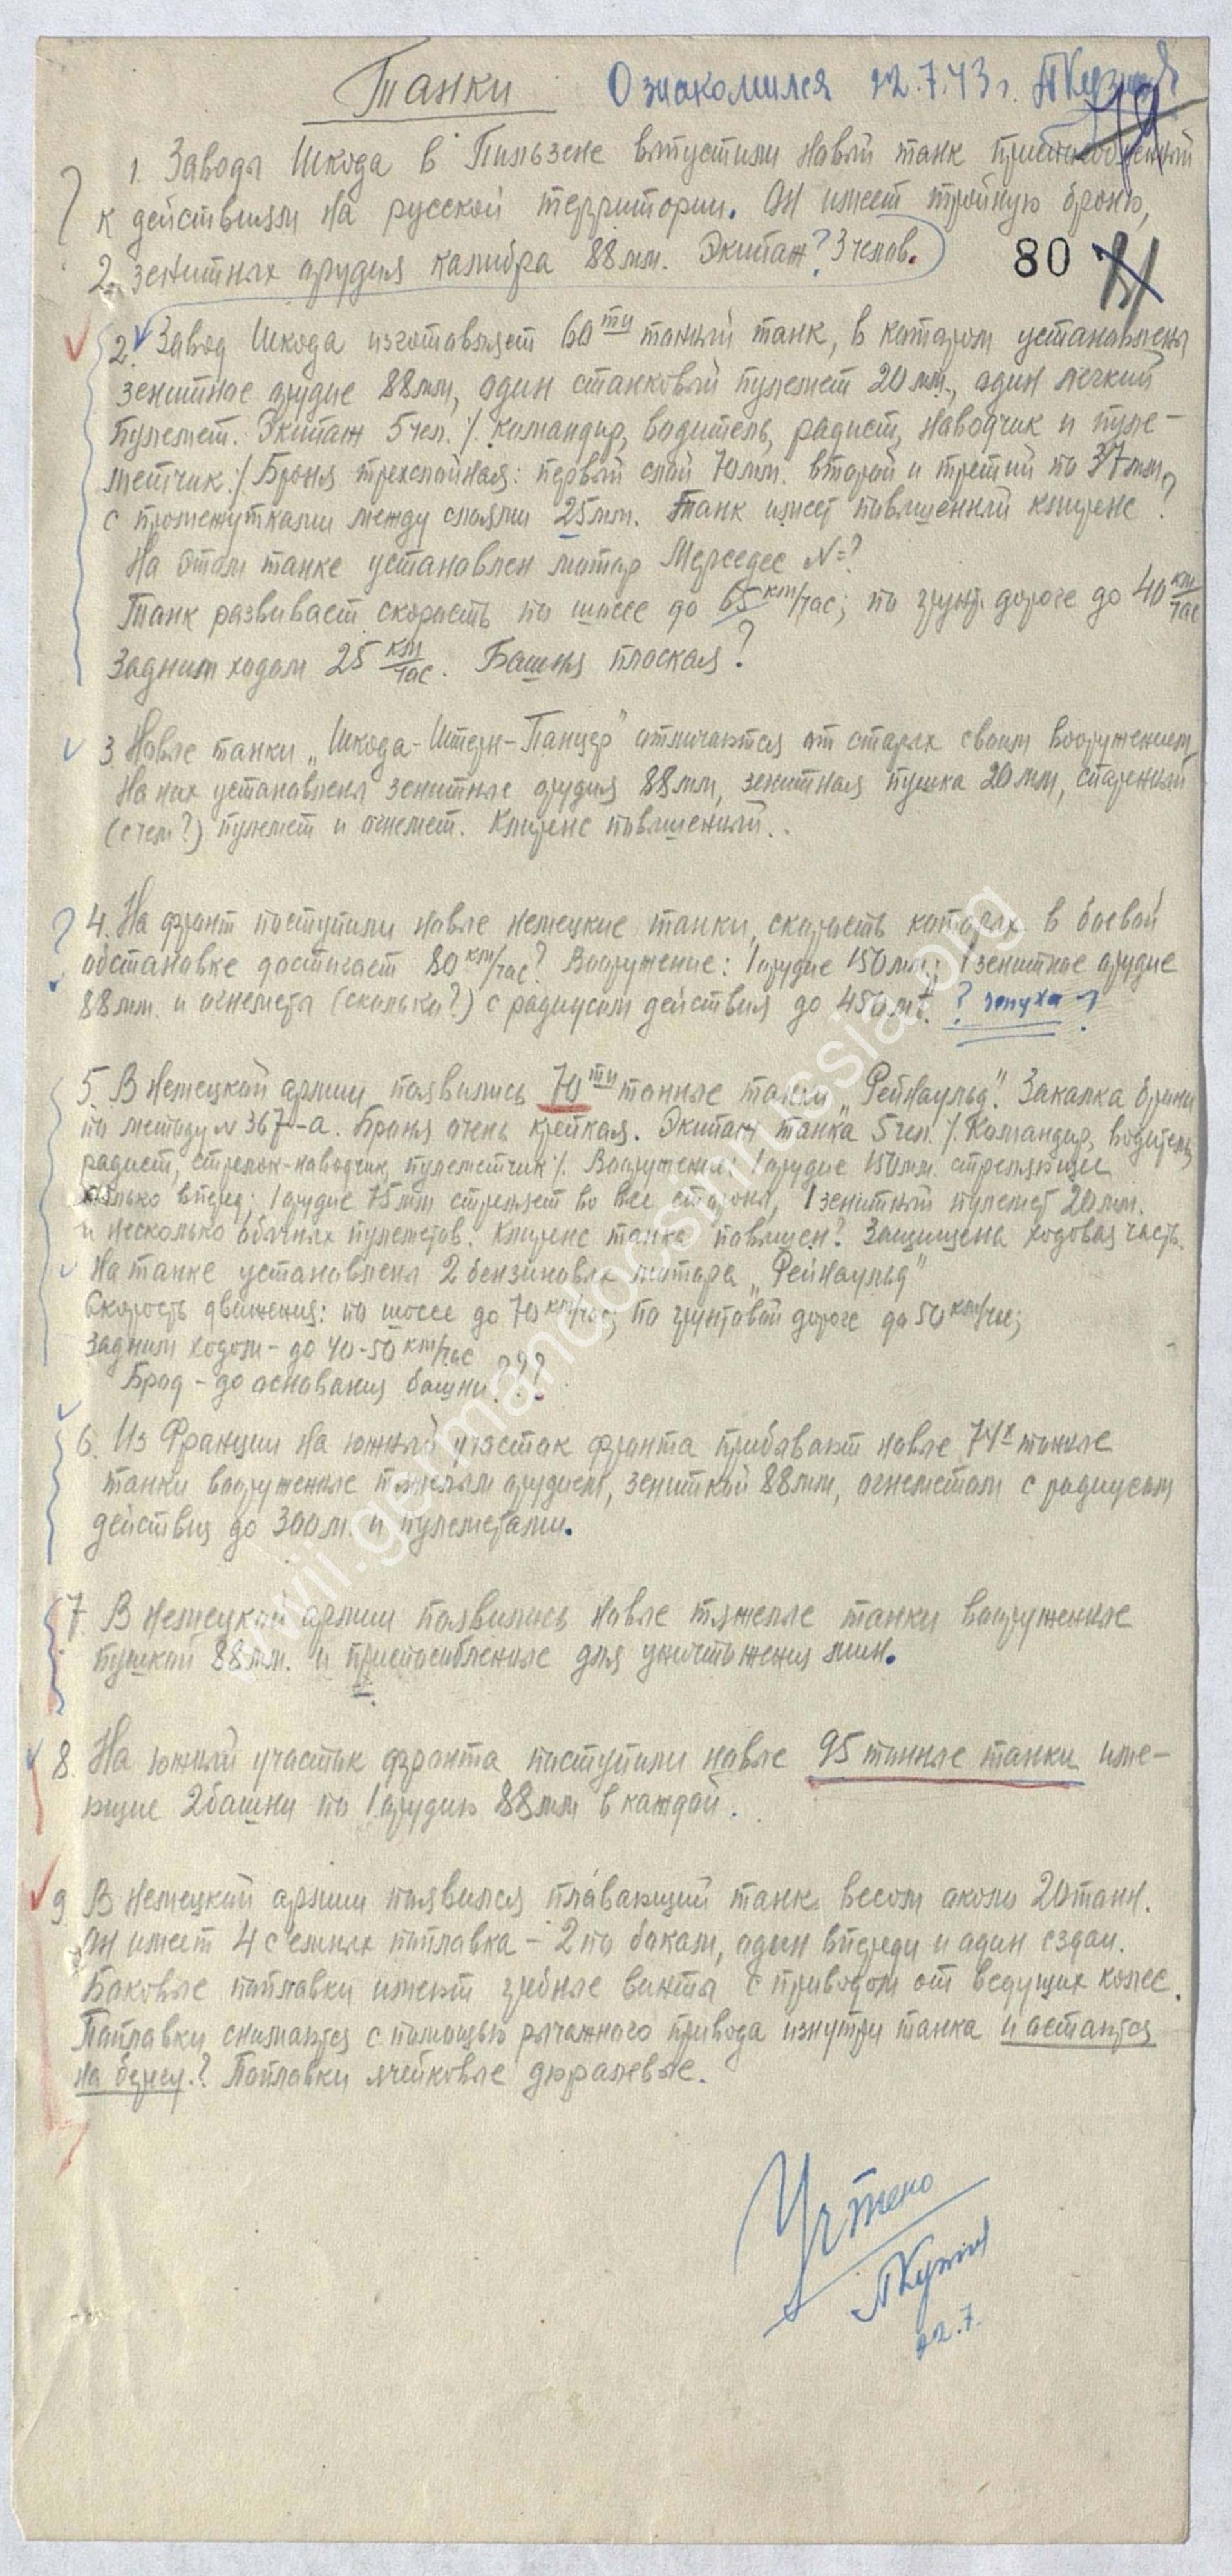 Танки
Ознакомился 22.7.43 г.
1. Заводы Шкода в Пильзене выпустили новый танк приспособленный
к действиям на русской территории. Он имеет тройную броню,
2 зенитных орудия калибра 88мм. Экипаж? 3 челов.
80
2. Завод Шкода изготовляет 60ти тонный танк, в котором установлены
зенитное орудие 88мм, один станковый пулемет 20мм, один легкий
пулемет. Экипаж 5 чел. /. командир, водитель, радист, наводчик и пуле-
метчик ./ Броня трехслойная: первый слой 70мм. второй и третий по 37мм
с промежутками между слоями 25мм. Танк имеет повышенный клиренс ?
На этом танке установлен мотор Мерседес N=?
Танк развивает скорость по шоссе до 65 км/час; по грунт. дороге до 40 км/час
Задним ходом 25 км/час. Башня плоская ?
3 Новые танки „Шкода-Штерн-Панцер" отличаются от старых своим вооружением
На них установлены зенитные орудия 88мм, зенитная пушка 20мм, спаренный
(с чем?) пулемет и огнемет. Клиренс повышенный..
? 4. На фронт поступили новые немецкие танки, скорость которых в боевой
обстановке достигает 80 км/час? Вооружение: 1 орудие 150мм; 1 зенитное орудие
88мм. и огнеметы (сколько?) с радиусом действия до 450 мт. ? чепуха ?
5. В Немецкой армии появились 70ти тонные танки „Рейнаульд". Закалка брони
по методу № 367-а. Броня очень крепкая. Экипаж танка 5 чел. /. Командир, водитель,
радист, стрелок-наводчик, пулеметчик /. Вооружение: 1 орудие 150мм. стреляющее
только вперед; 1 орудие 75мм стреляет во все стороны, 1 зенитный пулемет 20мм.
и несколько обычных пулеметов. Клиренс танка повышен? Защищена ходовая часть.
На танке установлены 2 бензиновых мотора „Рейнаульд"
Скорость движения: по шоссе до 70 км/час; по грунтовой дороге до 50 км/час;
задним ходом – до 40-50 км/час
Брод – до основания башни ???
6. Из Франции на южный участок фронта прибывают новые 74х тонные
танки вооруженные тяжелым орудием, зениткой 88мм, огнеметом с радиусом
действия до 300м. и пулеметами.
7. В Немецкой армии появились новые тяжелые танки вооруженные
пушкой 88мм. и приспособленные для уничтожения мин.
8. На южный участок фронта поступили новые 95 тонные танки име-
ющие 2 башни по 1 орудию 88мм в каждой.
9 В немецкой армии появился плавающий танк весом около 20 тонн.
Он имеет 4 с'емных поплавка – 2 по бокам, один впереди и один сзади.
Боковые поплавки имеют гребные винты с приводом от ведущих колес.
Поплавки снимаются с помощью рычажного привода изнутри танка и остаются
на берегу.? Поплавки ячейковые дюралевые.
Учтено
22.7.
www.ii.germandocsinrussia.org